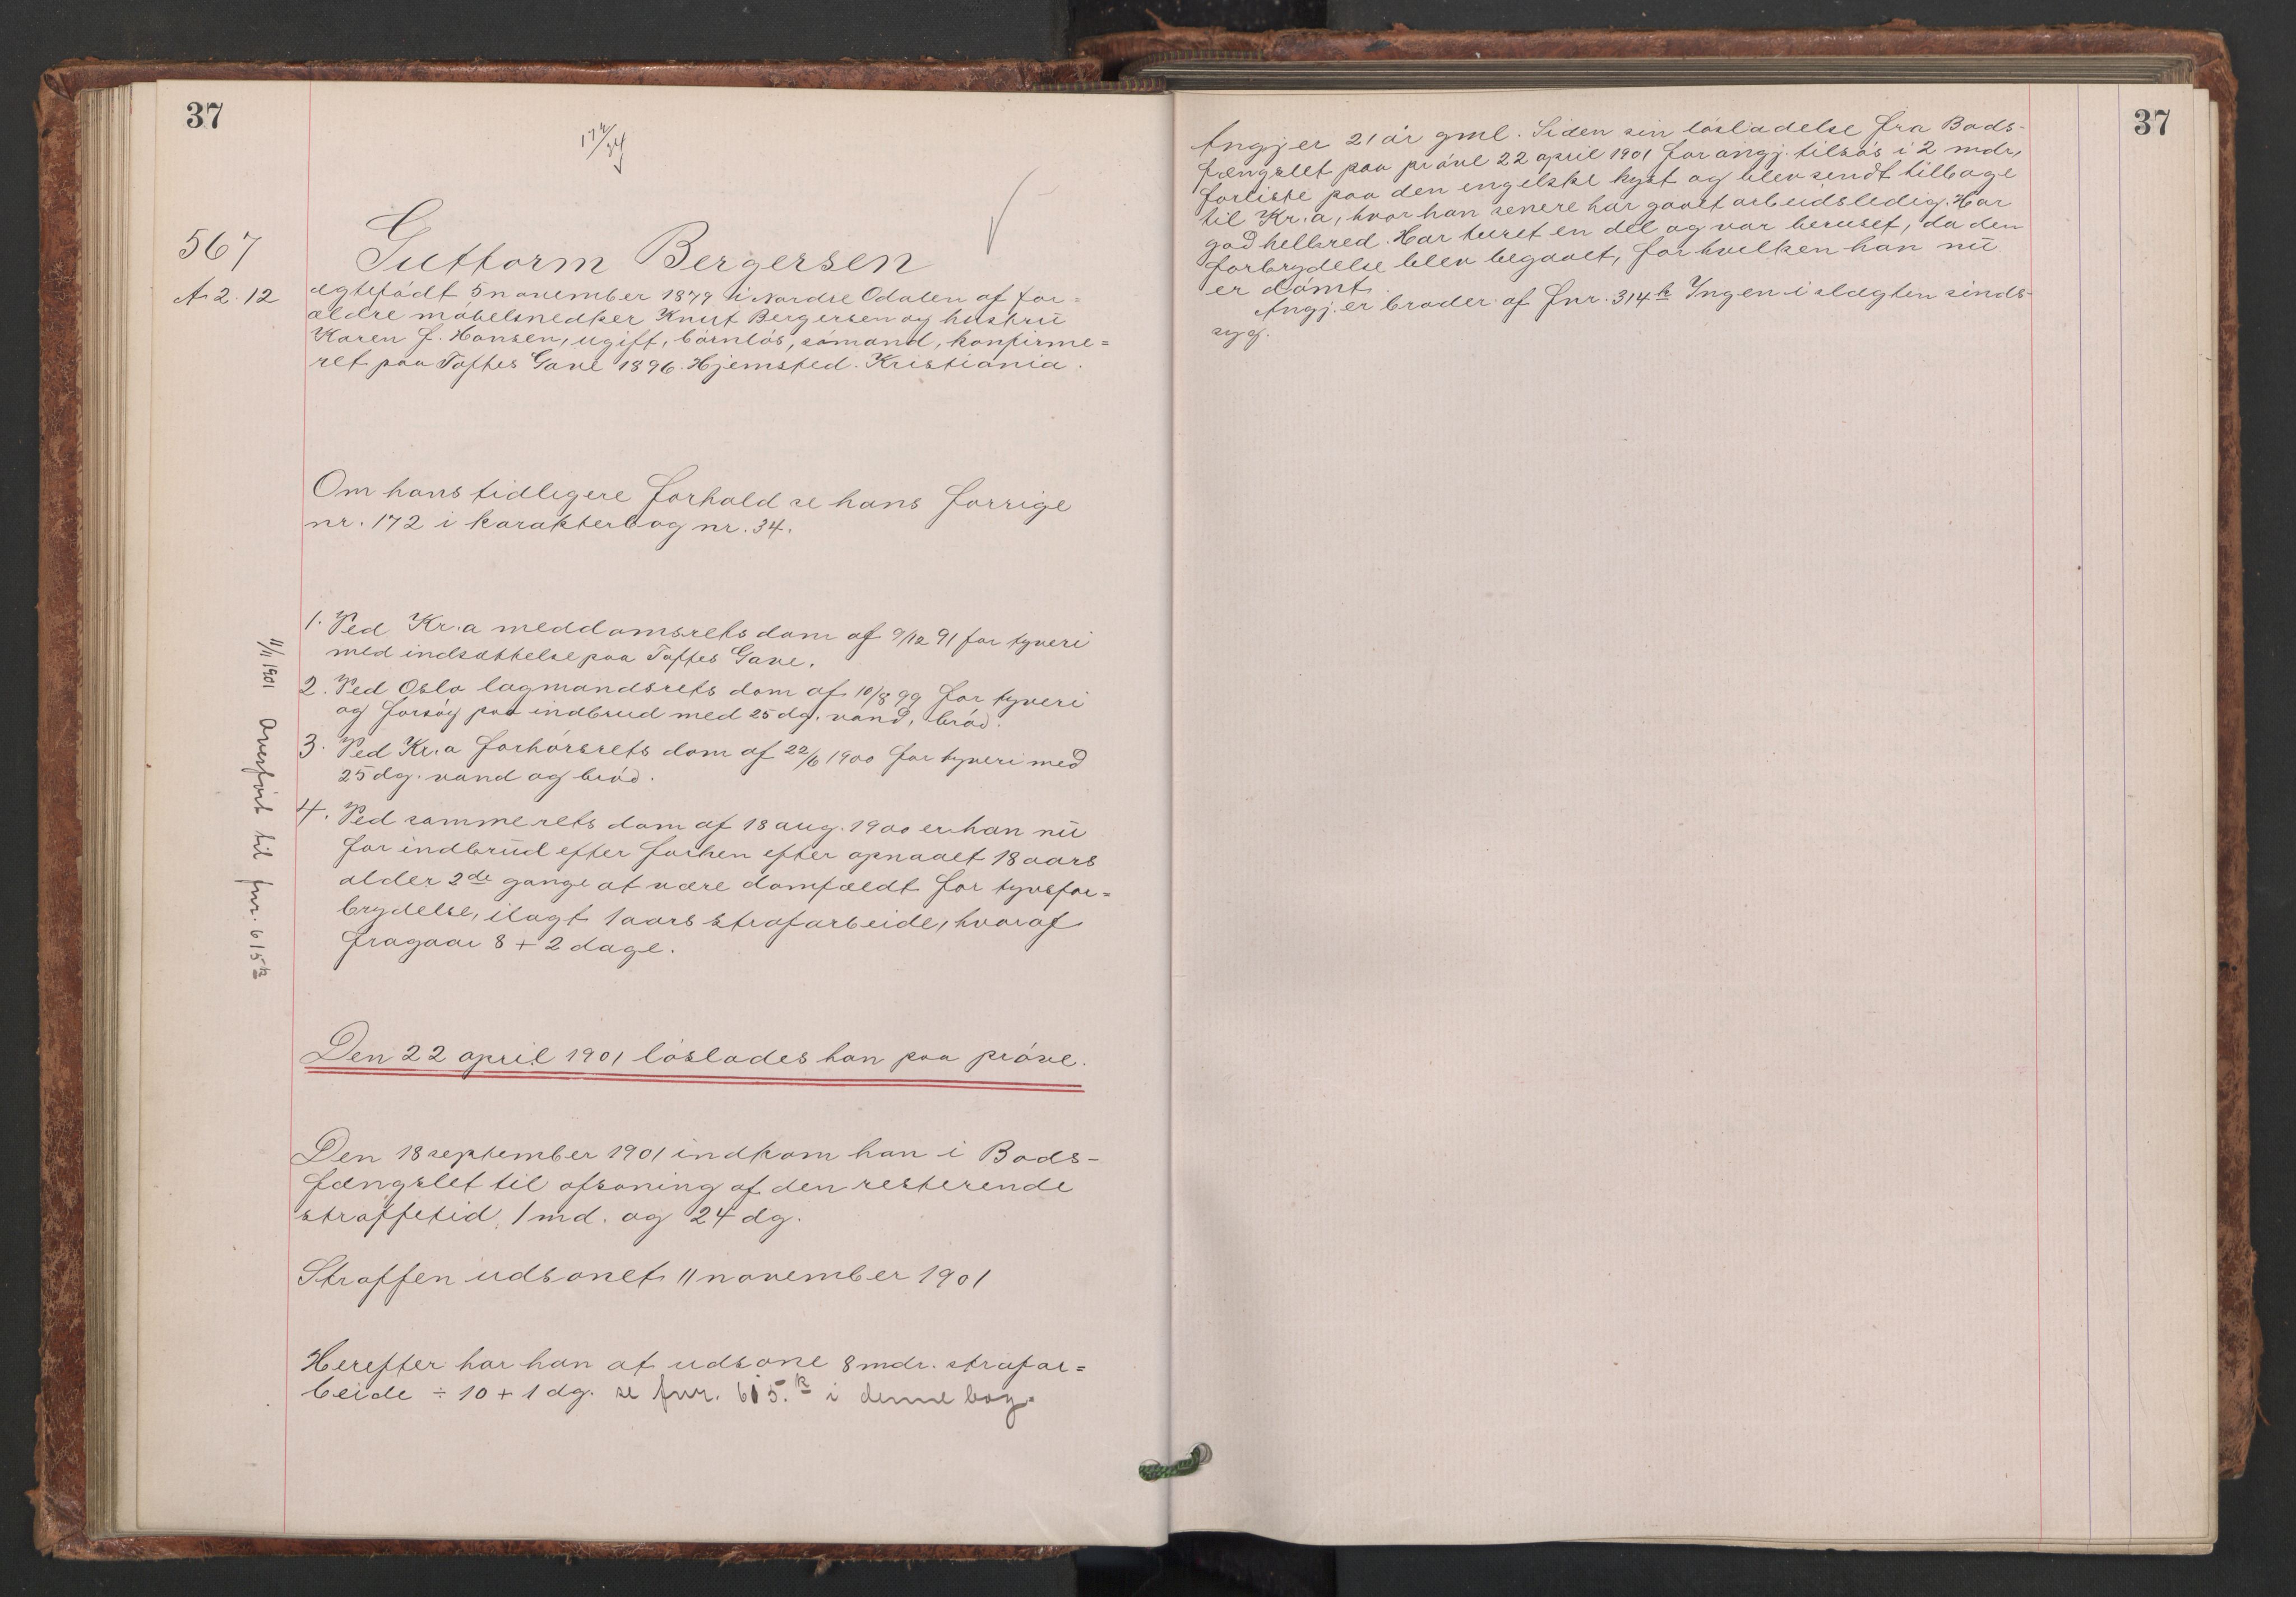 37
567
A. 2. 12
Guttorm Bergersen
ægtefødt 5 november 1879 i Nordre Odalen af for=
ældre møbelsnedker Knut Bergersen og hustru
Karen f. Hansen, ugift, børnløs, sømand, konfirme=
ret paa Toftes Gave 1896. Hjemsted. Kristiania.
Om hans tidligere forhold se hans forrige
nr. 172 i karakterbog nr. 34.
1. Ved Kr.a meddomsrets dom af 9/12 91 for tyveri
med indsættelse paa Toftes Gave.
2. Ved Oslo lagmandsrets dom af 10/8 99 for tyveri
og forsøg paa indbrud med 25 dg. vand, brød.
3. Ved Kr.a forhørsrets dom af 22/6 1900 for tyveri med
25 dg. vand og brød.
4. Ved samme rets dom af 18 aug. 1900 er han nu
for indbrud efter forhen efter opnaaet 18 aars
alder 2de gange at være domfældt for tyvsfor=
brydelse, ilagt 1 aars strafarbeide, hvoraf
fragaar 8 + 2 dage.
11/11 1901 Overført til fnr. 615 k
Den 22 april 1901 løslades han paa prøve.
Den 18 september 1901 indkom han i Bods-
fængslet til afsoning af den resterende
straffetid, 1 md. og 24 dg.
Straffen udsonet 11 november 1901
Herefter har han at udsone 8 mdr. strafar=
beide ÷ 10 + 1 dg. se fnr. 615. k i denne bog.
37
Angj er 21 år gml. Siden sin løsladelse fra Bods-
fængslet paa prøve 22 april 1901 for angj. tilsøs i 2 mdr,
forliste paa den engelske kyst og blev sendt tilbage
til Kr.a, hvor han senere har gaaet arbeidsledig. Har
god helbred. Har turet en del og var beruset, da den
forbrydelse blev begaaet, for hvilken han nu
er dømt.
Angj. er broder af fnr. 314 k Ingen i slægten sinds-
syg.